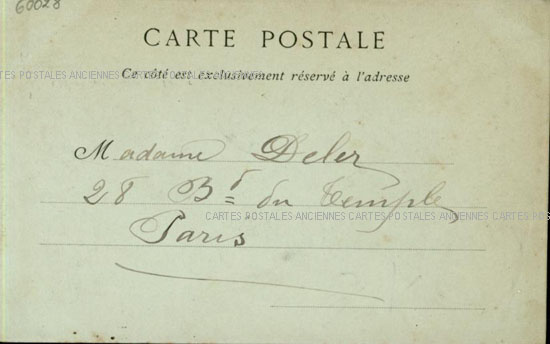 60028
CARTE POSTALE
CARTES POSTALES ANCIENNES CARTES POSTALES ANCIENNES
Ce côté est exclusivement réservé à l'adresse
Madame Deler
28 Bd du Temple
CARTES POSTALES ANCIENNES CARTES POSTALES ANCIENNES CARTES POS
Paris